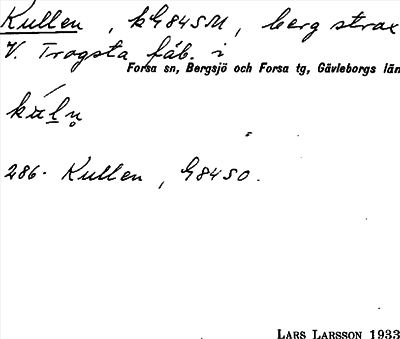 Kullen, kG84SM, berg strax
V. Trogsta fäb. i
Forsa sn, Bergsjö och Forsa tg, Gävleborgs län
286. Kullen, G84SO.
LARS LARSSON 1933